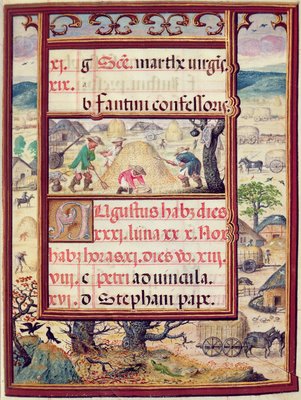 xi. g Sce. marthe virgis
xix.
b fantini confessoris
Augustus habz dies
xxxi. luna xxx. Nox
habz horas xi. dies vo xiii.
viii. c petri ad vincula.
xvi. d Stephani pape.